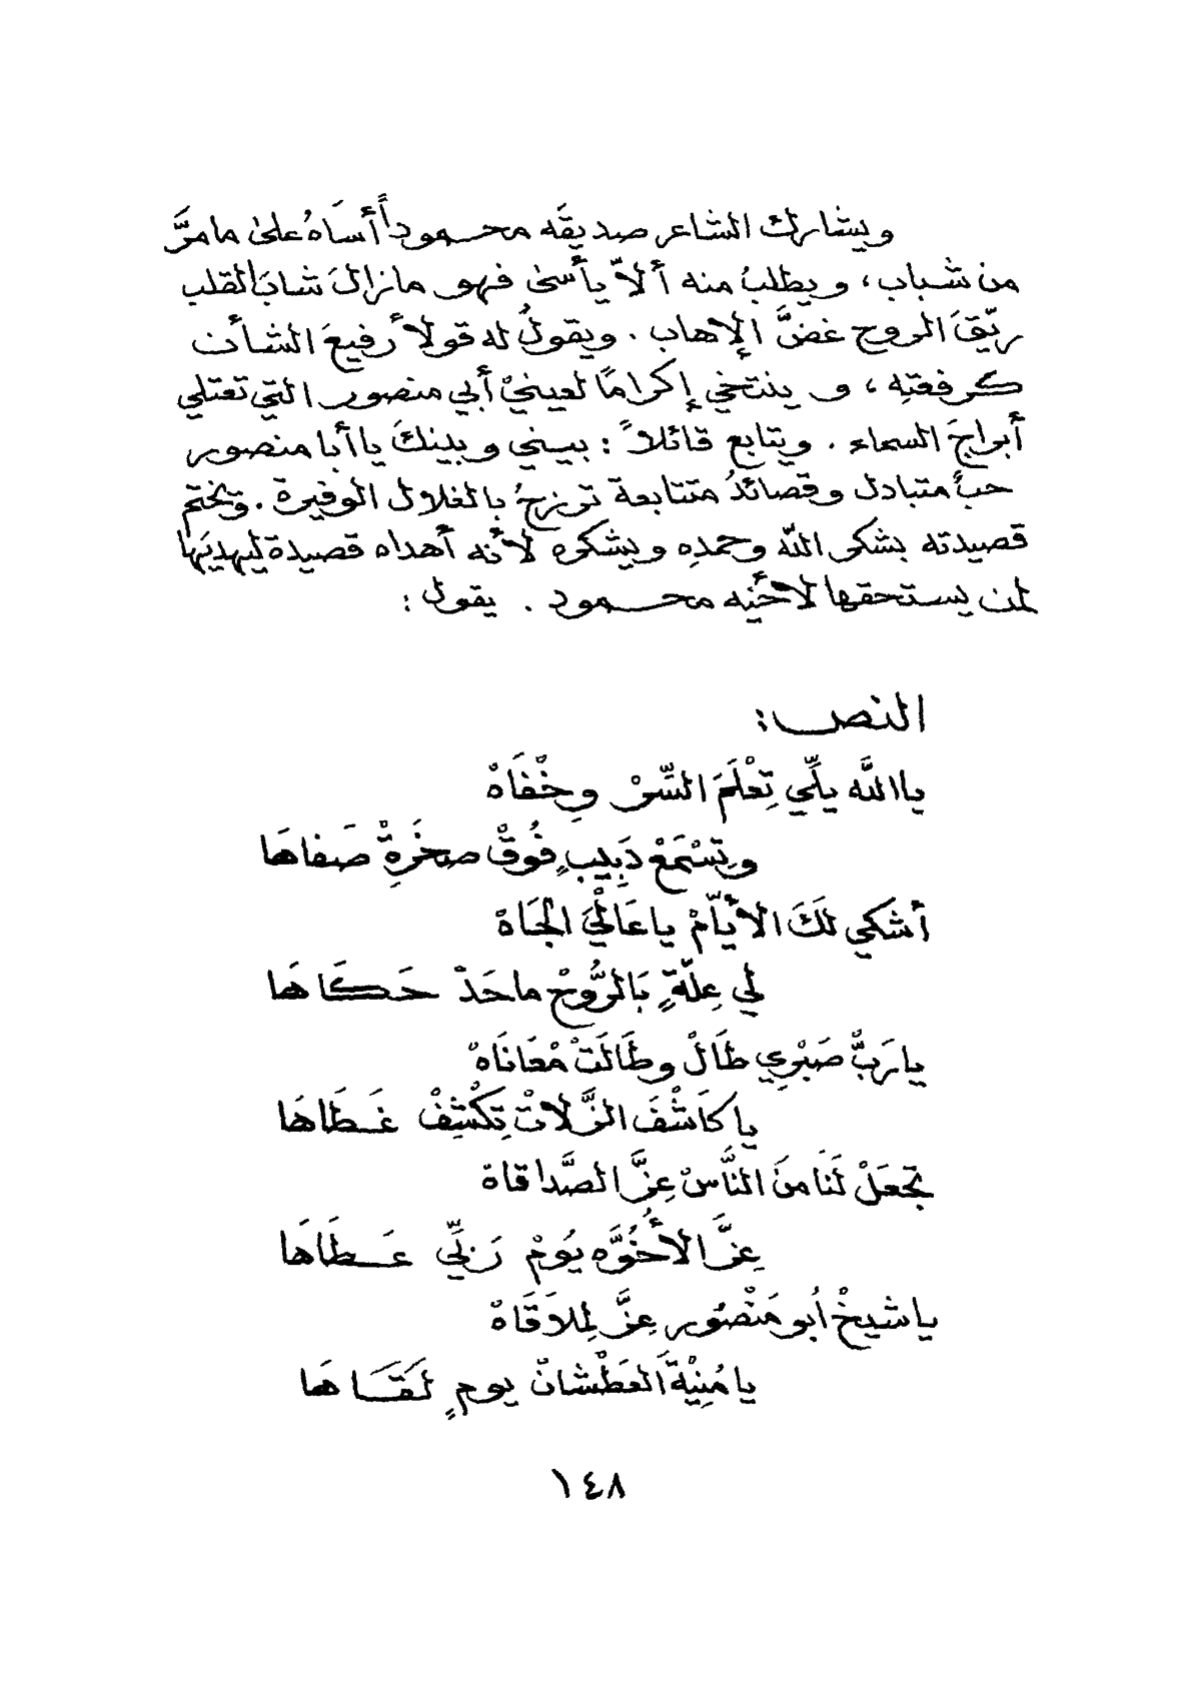 ويشارك الشاعر صديقَه محموداً أساَهُ على ما مرَّ
من شباب، ويطلبُ منه ألاّ يأسىٰ فهو مازالَ شابَ القلب
ريّقَ الروح غضَّ الإهاب. ويقولُ له قولاً رفيعَ الشأن
كرفعتِه، و ينتخي إكرامًا لعينيْ أبي منصور التي تعتلي
أبراجَ السماء. ويتابع قائلاً: بيني وبينكَ يا أبا منصور
حبٌ متبادل وقصائدُ متتابعة تورزحُ بالغلال الوفيرة. وتختم
قصيدته بشكر اللّه وحمدِه ويشكره لأنه أهداه قصيدة ليهديَها
لمن يستحقها لأخيه محمود. يقول:
النص:
يا اللَّه يلِّي تِعْلَمَ السِّرْ وِخْفَاهْ
وِتِسْمَعْ دَبِيبٍ فُوقْ صخَرةْ صَفاهَا
أشكي لَكَ الأيّامْ يا عَاليْ الجَاهْ
لي عِلّةٍ بَالرُّوحْ ماحَدْ حَكَاهَا
يا رَبّْ صَبْرِي طَالْ وطَالَتْ مْعَانَاهْ
يا كَاشْفَ الزَّلاتْ تِكْشِفْ غَطَاهَا
تجعَلْ لَنَا منَ النَّاسْ عِزَّ الصَّداقاة
عِزَّ الأُخُوَّه يُومْ رَبِّي عَطَاهَا
يا شيخْ أبو مَنْصُور عِزَّ لِملاَقَاهْ
يا مُنِيْةَ العَطْشانْ يومٍ لَقَاهَا
١٤٨